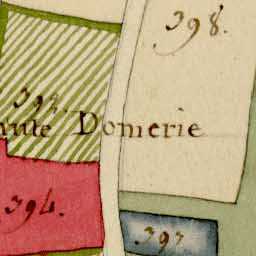 398.
393.
Domerie
394.
397